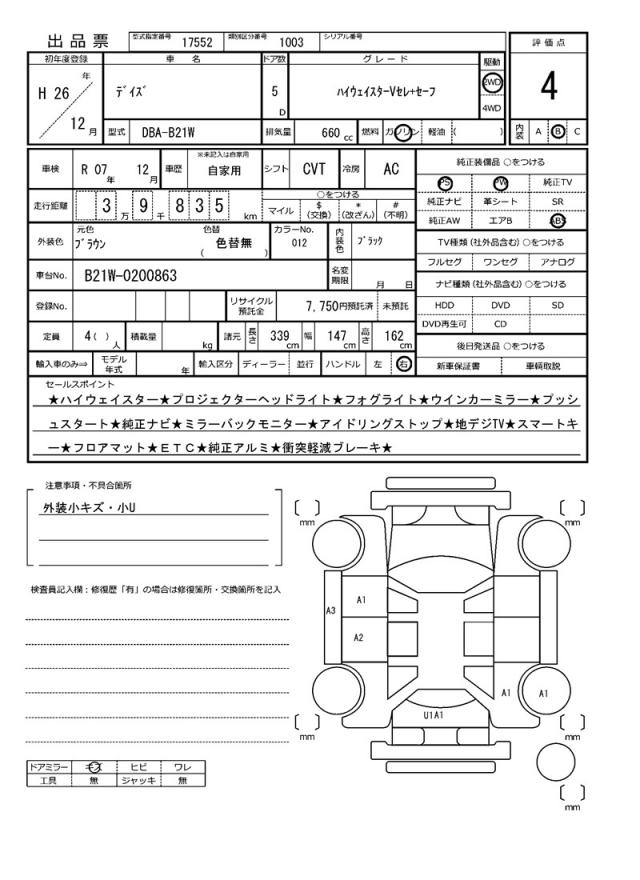 出品票
型式指定番号 17552 類別区分番号 1003 シリアル番号
評価点
4
内装 A B C
初年度登録 車名 ドア数 グレード 駆動
H 26 年 12 月
ﾃﾞｲｽﾞ
5 D
ﾊｲｳｪｲｽﾀｰVｾﾚ+ｾｰﾌ
2WD
4WD
型式 DBA-B21W 排気量 660 cc 燃料 ガソリン 軽油 ( )
車検 R 07 年 12 月 車歴 ※未記入は自家用 自家用 シフト CVT 冷房 AC
走行距離 3 万 9 千 8 3 5 km
○をつける
マイル $ (交換) * (改ざん) # (不明)
外装色 元色 ﾌﾞﾗｳﾝ 色替 色替無 ( ) カラーNo. 012 内装色 ﾌﾞﾗｯｸ
車台No. B21W-0200863 名変期限 月 日
登録No. リサイクル預託金 7,750円預託済 未預託
定員 4 ( ) 人 積載量 kg 諸元 長さ 339 cm 幅 147 cm 高さ 162 cm
輸入車のみ⇒ モデル年式 年 輸入区分 ディーラー 並行 ハンドル 左 右
純正装備品 ○をつける
PS PW 純正TV
純正ナビ 革シート SR
純正AW エアB ABS
TV種類 (社外品含む) ○をつける
フルセグ ワンセグ アナログ
ナビ種類 (社外品含む) ○をつける
HDD DVD SD
DVD再生可 CD
後日発送品 ○をつける
新車保証書 車輌取説
セールスポイント
★ハイウェイスター★プロジェクターヘッドライト★フォグライト★ウインカーミラー★プッシ
ュスタート★純正ナビ★ミラーバックモニター★アイドリングストップ★地デジTV★スマートキ
ー★フロアマット★ＥＴＣ★純正アルミ★衝突軽減ブレーキ★
注意事項・不具合箇所
外装小キズ・小U
検査員記入欄：修復歴「有」の場合は修復箇所・交換箇所を記入
ドアミラー キズ ヒビ ワレ
工具 無 ジャッキ 無
mm
mm
A1
A3
A2
A1
A1
U1A1
mm
mm
mm